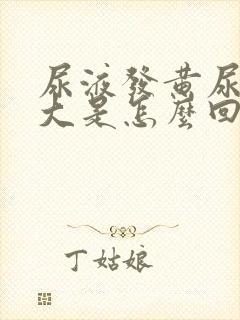 尿液發黃尿
大是怎麼回
丁姑娘